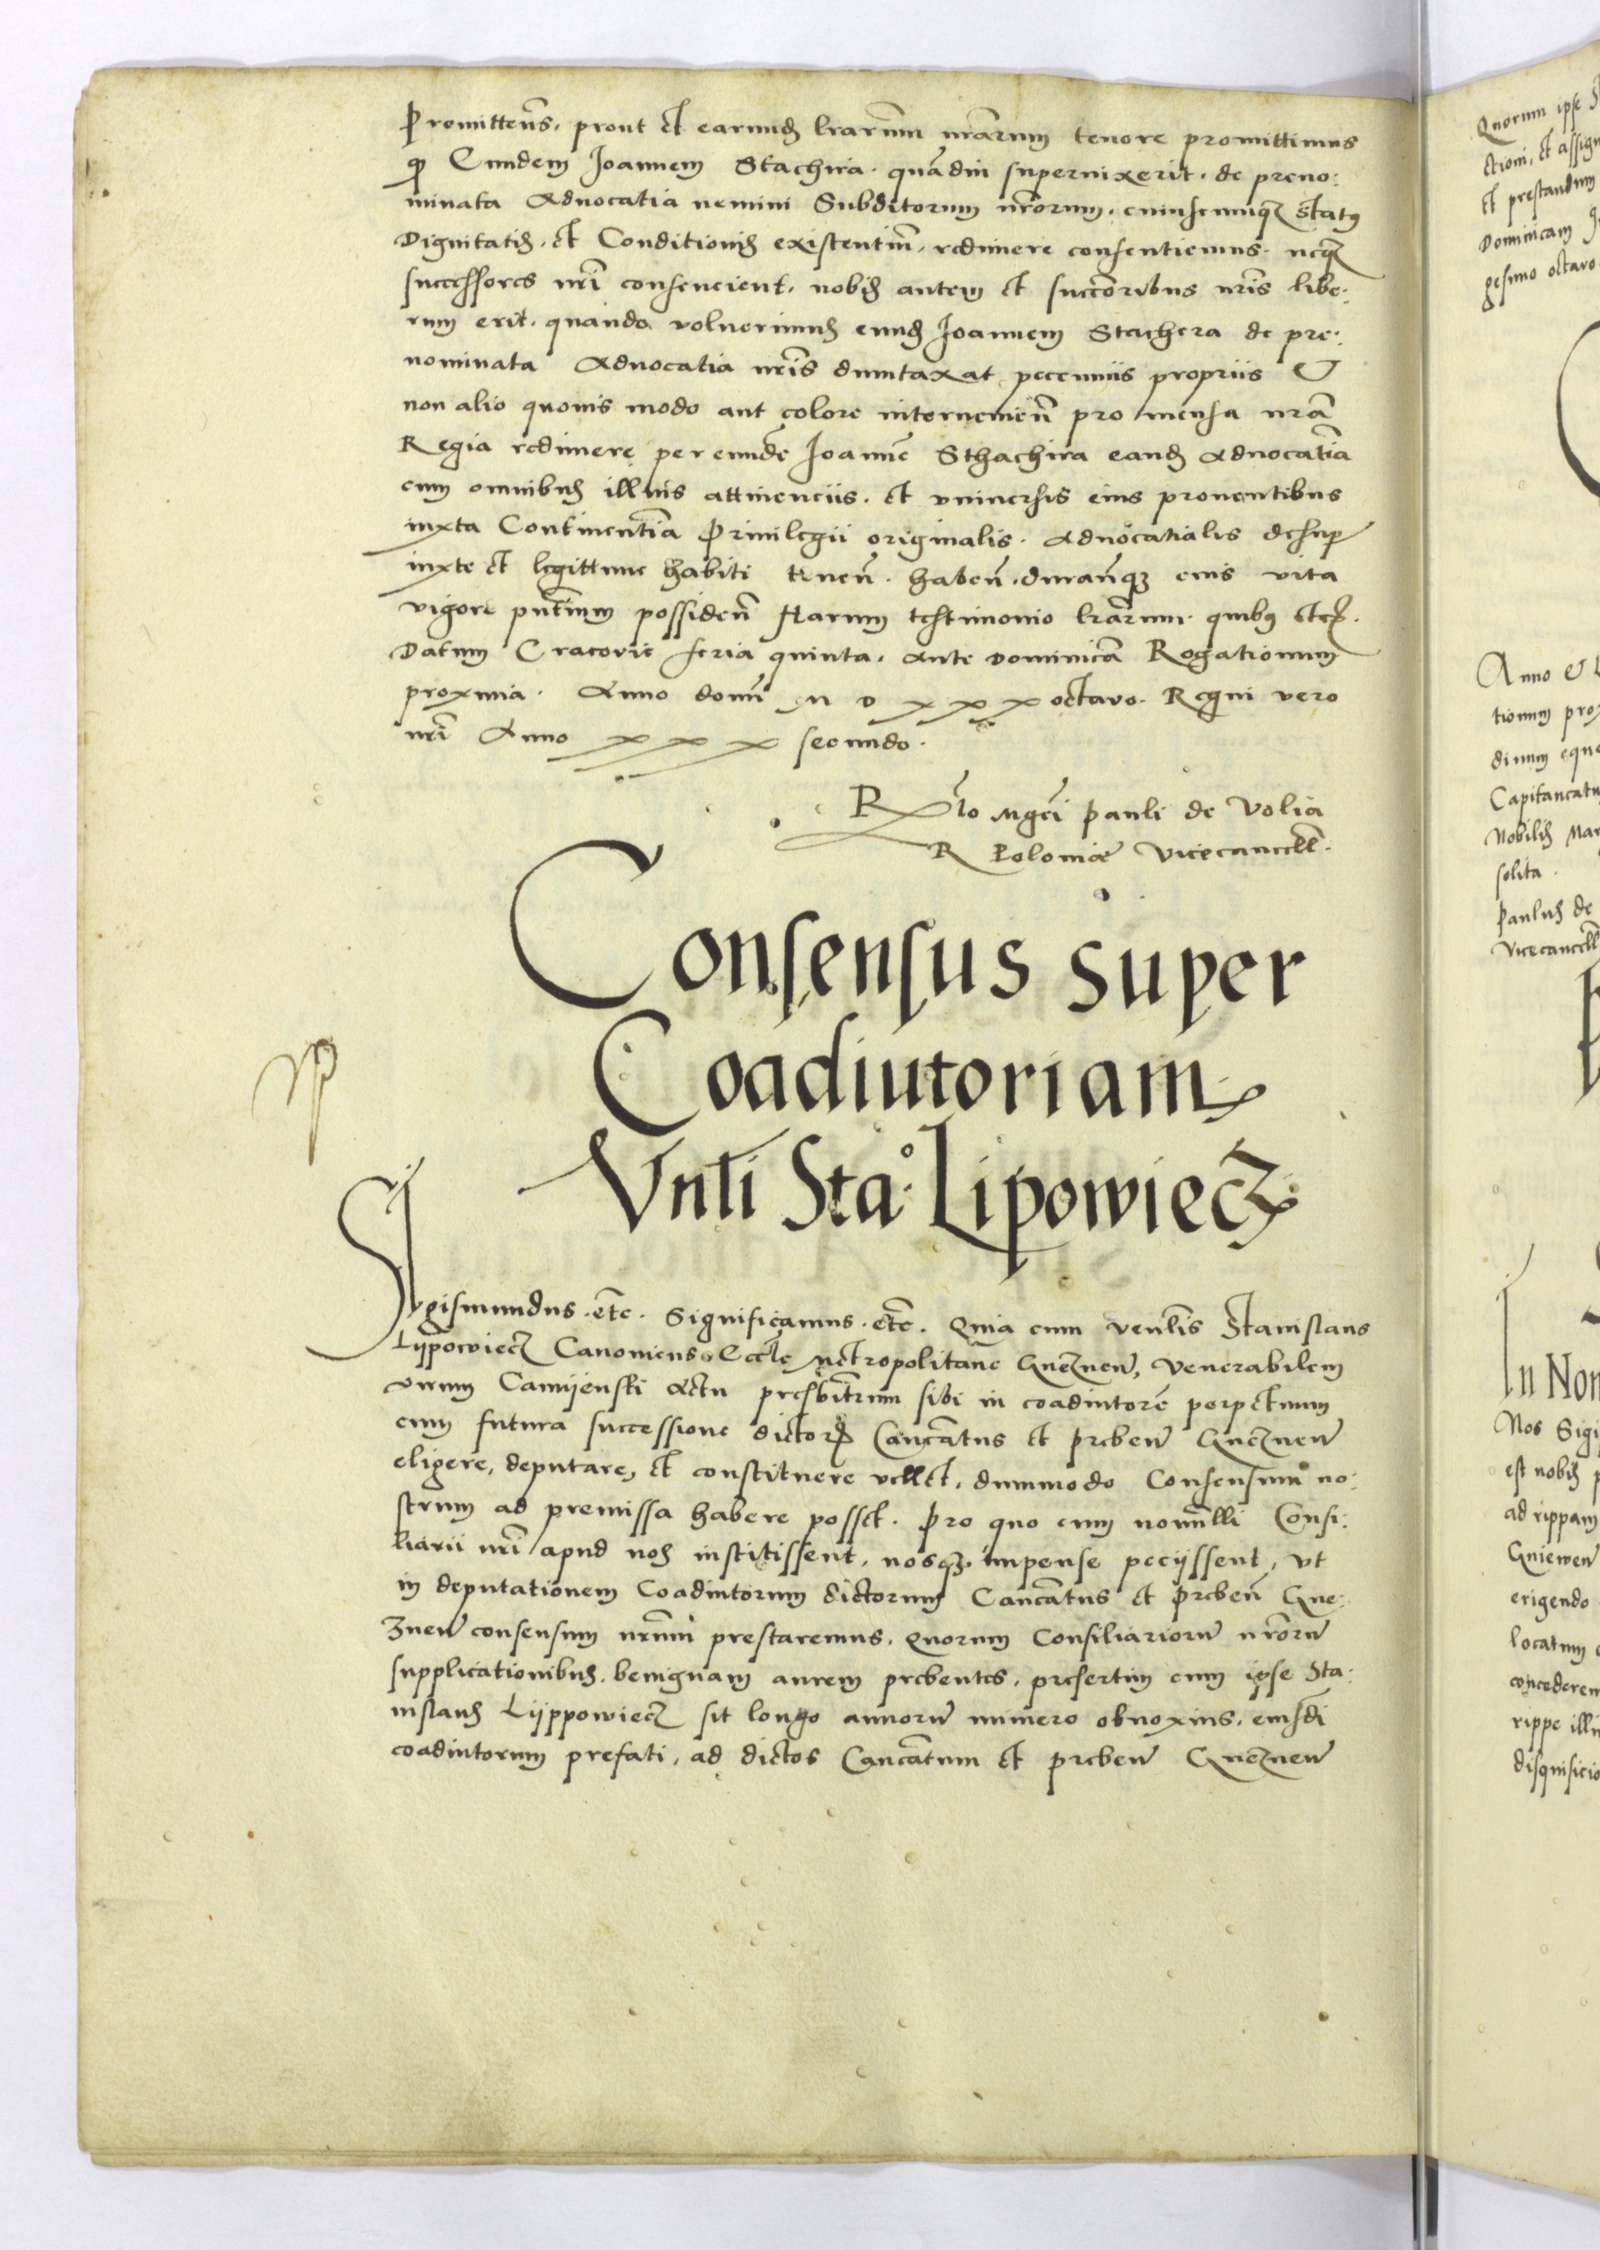 Promitteñs, prout et earundem lrarum nrarum tenore promittimus
quod Eundem Joannem Stachira quãdiu supervixerit, de preno:
minata Advocatia nemini Subditorum nrorum, cuiuscunque status
Dignitatis, et Conditionis existentium, redimere consentiemus neque
successores nri consencient, nobis autem et succoribus nris libe:
rum erit, quando voluerimus eundem Joannem Stachera de pre:
nominata Advocatia nris dumtaxat pecuniis propriis &
non alio quovis modo aut colore intervenieñ pro mensa nrã
Regia redimere per eundẽ Joannẽ Sthachira eandem Advocatiã
cum omnibus illius attinenciis, et universis eius proventibus
iuxta Continentiã Privilegii originalis Advocatialis desuper
iuxte et legittime habiti teneñ. habeñ. durañque eius vita
vigore pñtium possideñ Harum testimonio lrarum quibus etc.
Datum Cracovie feria quinta, Ante Dominicã Rogationum
proxima. Anno domi M D x x x octavo. Regni vero
nri Anno x x x secundo.
Rlo Mgci Pauli de Volia
R Polonie Vicecancell.
Consensus super
Coadiutoriam
Vnli Sta: Lipowiecz
Sigismundus. etc. Significamus. etc. Quia cum venlis Stanislaus
Lijpowiecz Canonicus Eccle Metropolitane Gneznen, Venerabilem
virum Camijenski Actu presbitrum sibi in coadiutorẽ perpetuum
cum futura successione dictorum Cancatus et preben Gneznen
eligere, deputare, et constituere vellet, dummodo Consensum no:
strum ad premissa habere posset. Pro quo cum nonnulli Consi:
liarii nri apud nos institissent, nosque impense peciissent, ut
in deputationem Coadiutorum dictorum Cancatus et Preben Gne:
znen consensum nrum prestaremus, Quorum Consiliariorum nrorum
supplicationibus, benignam aurem prebentes, presertim cum ipse Sta:
nislaus Lijppowiecz sit longo annorum numero obnoxius, eiusdi
coadiutorum prefati, ad dictos Cancatum et preben Gneznen
Quorum ipse
ctioni, et assig
et prestandum
Dominicam
gesimo octavo
Anno &
tionum prox
dinum eque
Capitaneatu
Nobilis Mar
solita.
Paulus de
Vicecancell
In Nom
Nos Sigi
est nobis
ad rippam
Gniewen
erigendo
locatum
concederem
rippe illi
disquisicio